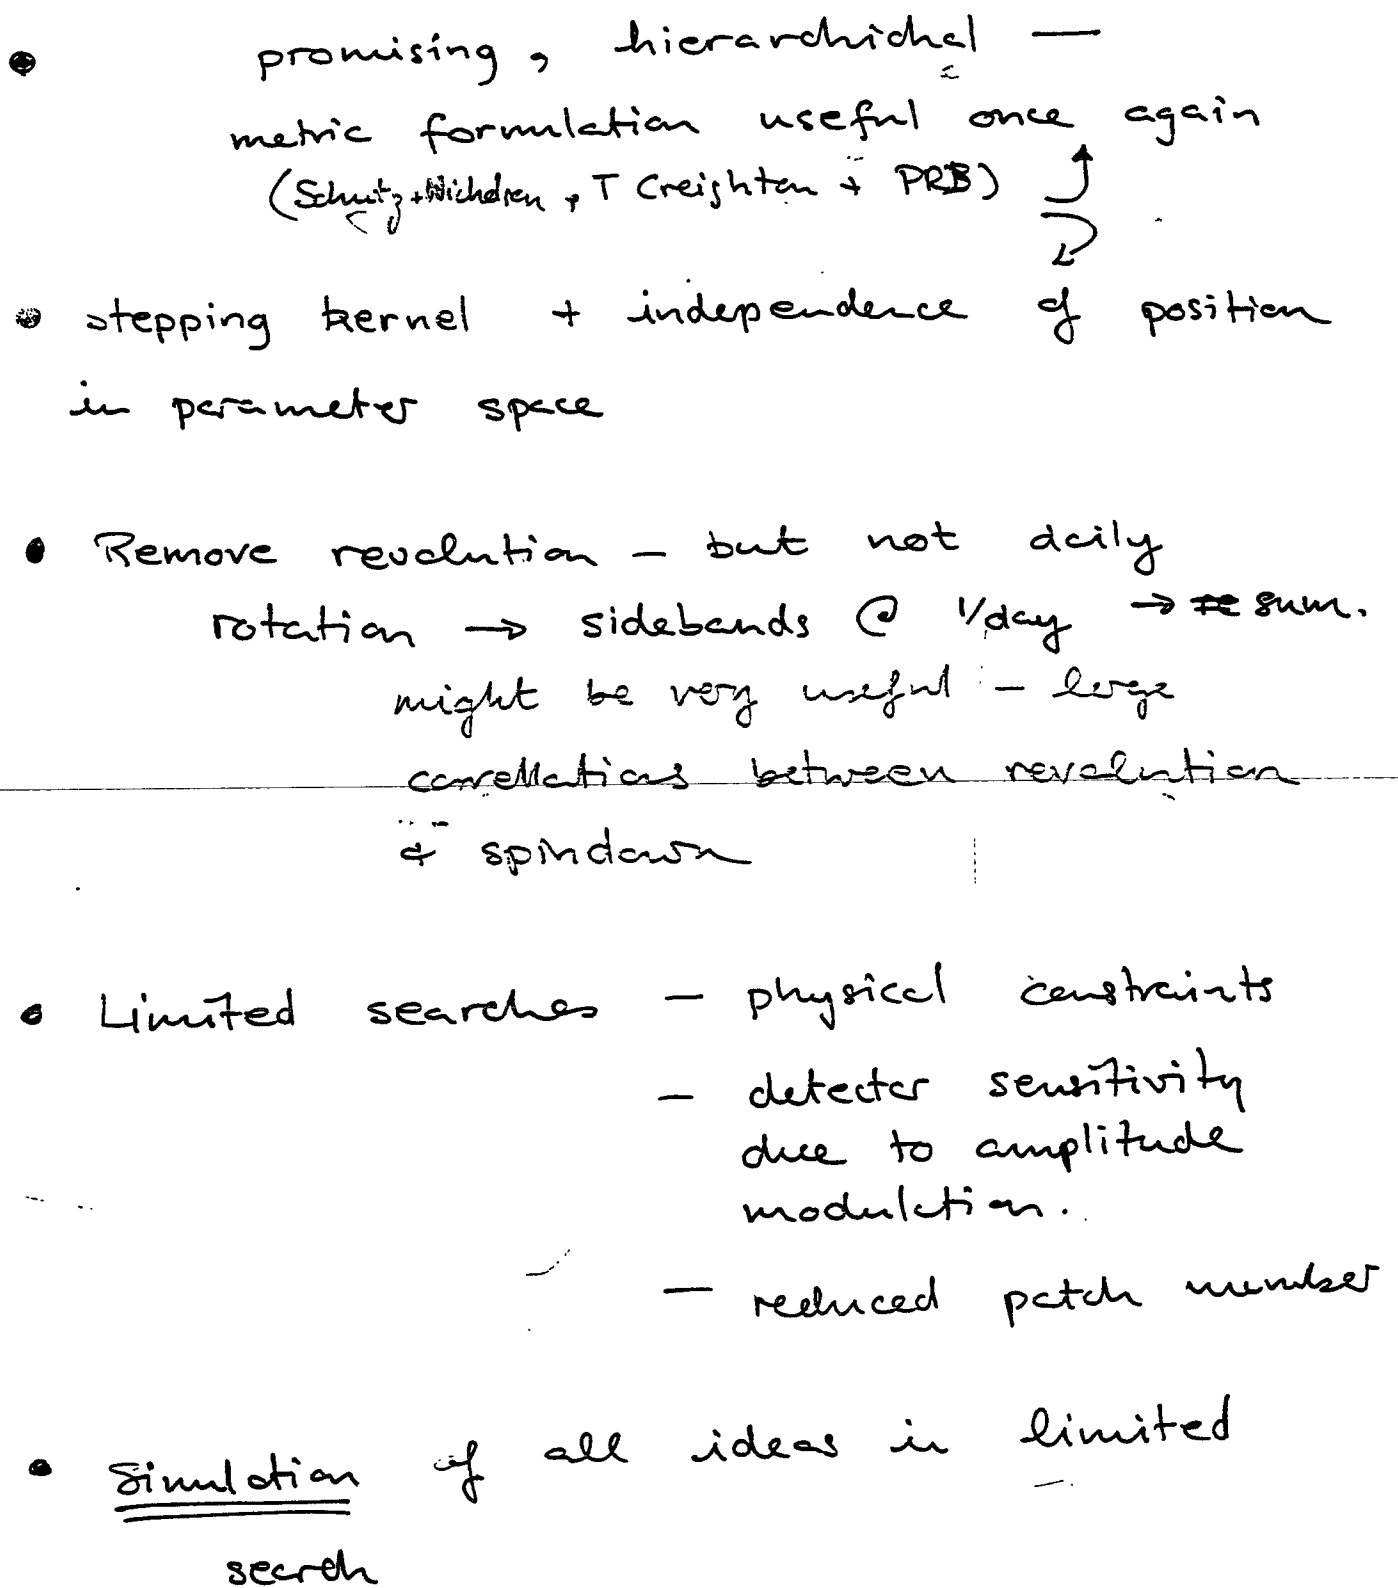 • promising, hierarchichal —
metric formulation useful once again
(Schutz + , T Creighton + PRB)
• stepping kernel + independence of position
in parameter space
• Remove revolution – but not daily
rotation → sidebands @ 1/day → sum.
might be very useful – large
correllations between revolution
& spindown
• Limited searches – physical constraints
– detector sensitivity
due to amplitude
modulation.
– reduced patch number
• Simulation of all ideas in limited
search